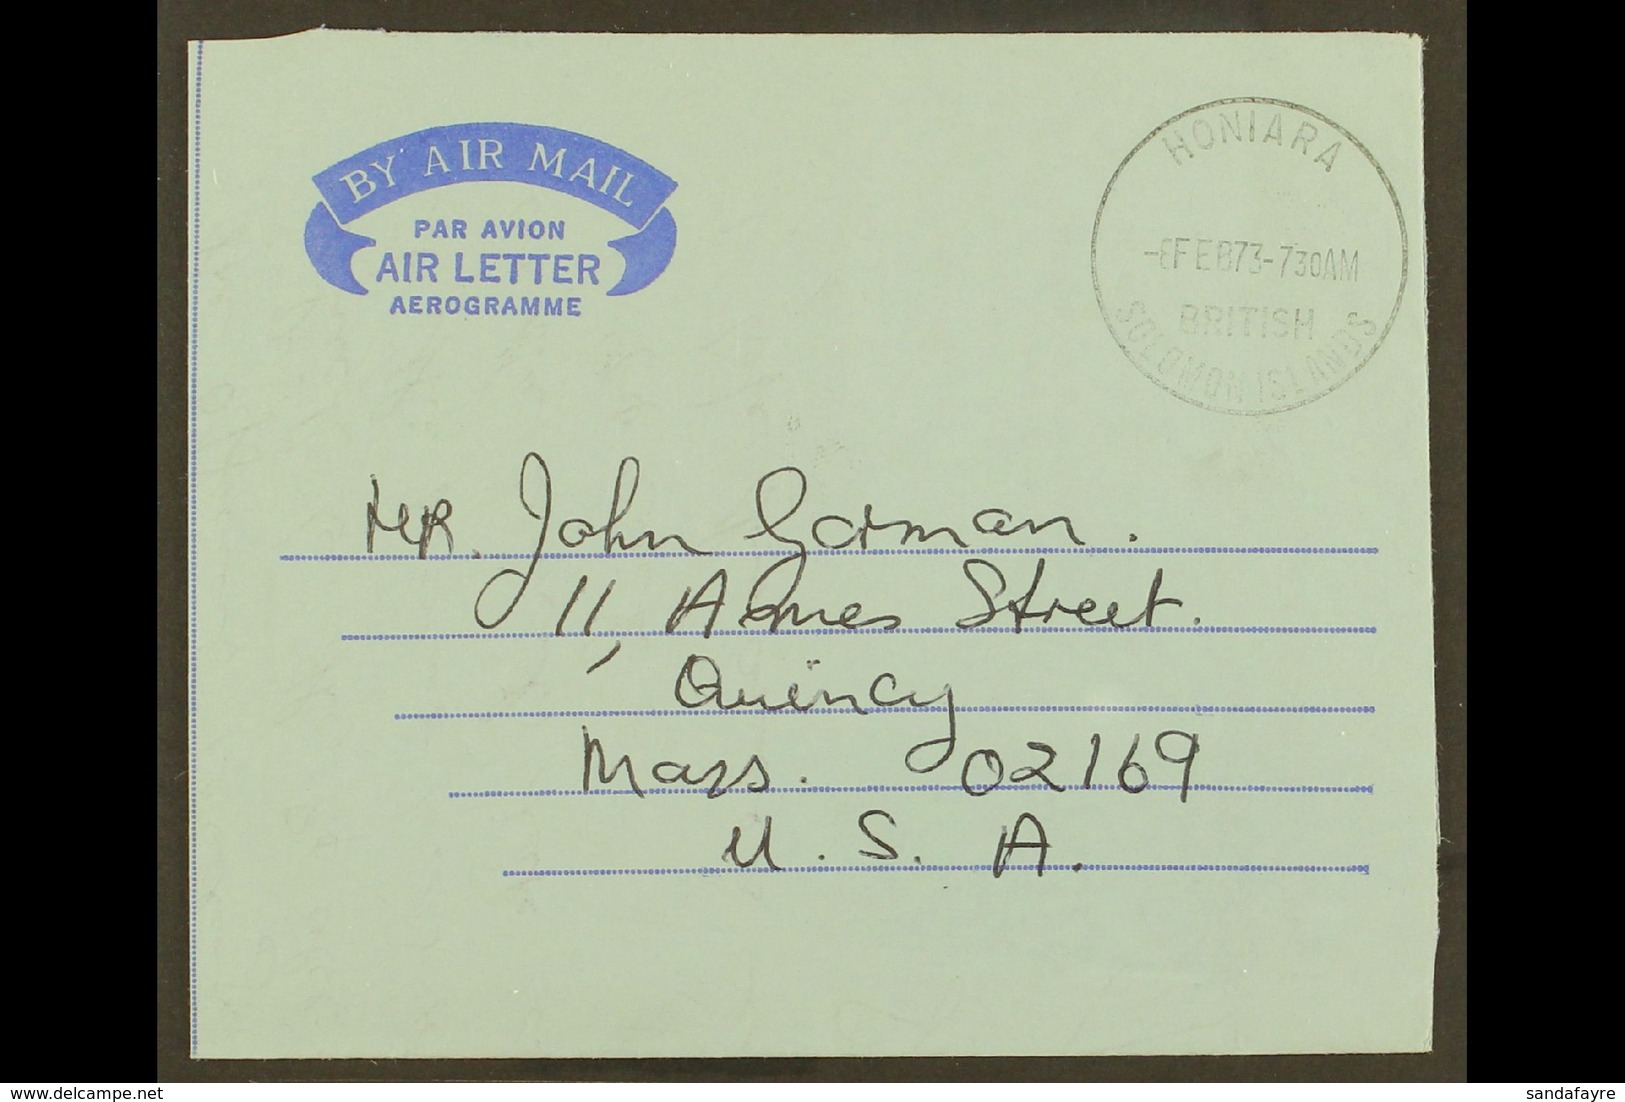 BY AIR MAIL
PAR AVION
AIR LETTER
AEROGRAMME
HONIARA
FEB73-730AM
BRITISH
SOLOMON ISLANDS
MR. John Gorman.
11, Street.
Quincy
Mass. 02169
U. S. A.
delcampe.net
sandafayre